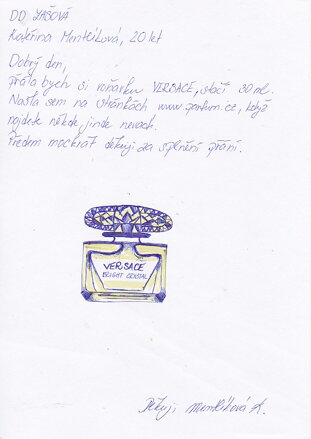 DD LAŠOVÁ
Kateřina Mentlíková, 20 let
Dobrý den,
přála bych si voňavku VERSACE, stačí 30 ml.
Našla sem na stránkách www.parfum.cz, když
najdete někde jinde nevadí.
Předem mockrát děkuji za splnění přání.
VERSACE
BRIGHT CRYSTAL
Děkuji Mentlíková K.